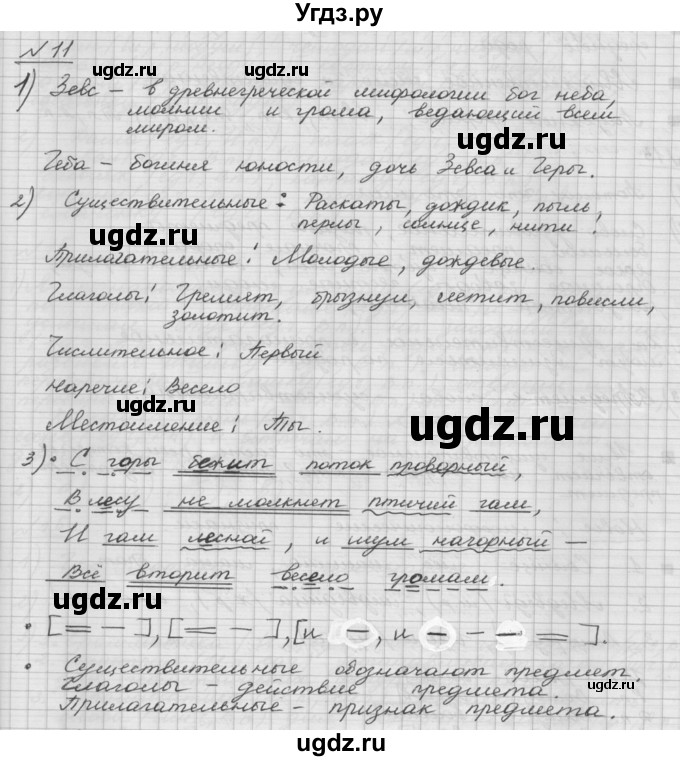 Угдз.ру
N 11
1) Зевс – в древнегреческой мифологии бог неба,
молнии и грома, ведающий всем
миром.
Геба – богиня юности, дочь Зевса и Геры.
2) Существительные: Раскаты, дождик, пыль,
перлы, солнце, нити.
Прилагательные: Молодые, дождевые.
Глаголы: Гремят, брызнул, летит, повисли,
золотит.
Числительное: Первый
Наречие: Весело
Местоимение: Ты.
3) • С горы бежит поток проворный,
В лесу не молкнет птичий гам,
И гам лесной, и шум нагорный –
Всё вторит весело громам.
• [= –], [= –], [и –, и – – – =].
• Существительные обозначают предмет.
Глаголы – действие предмета.
Прилагательные – признак предмета.
ugdz.ru
ugdz.ru
ugdz.ru
ugdz.ru
ugdz.ru
ugdz.ru
ugdz.ru
ugdz.ru
ugdz.ru
ugdz.ru
ugdz.ru
ugdz.ru